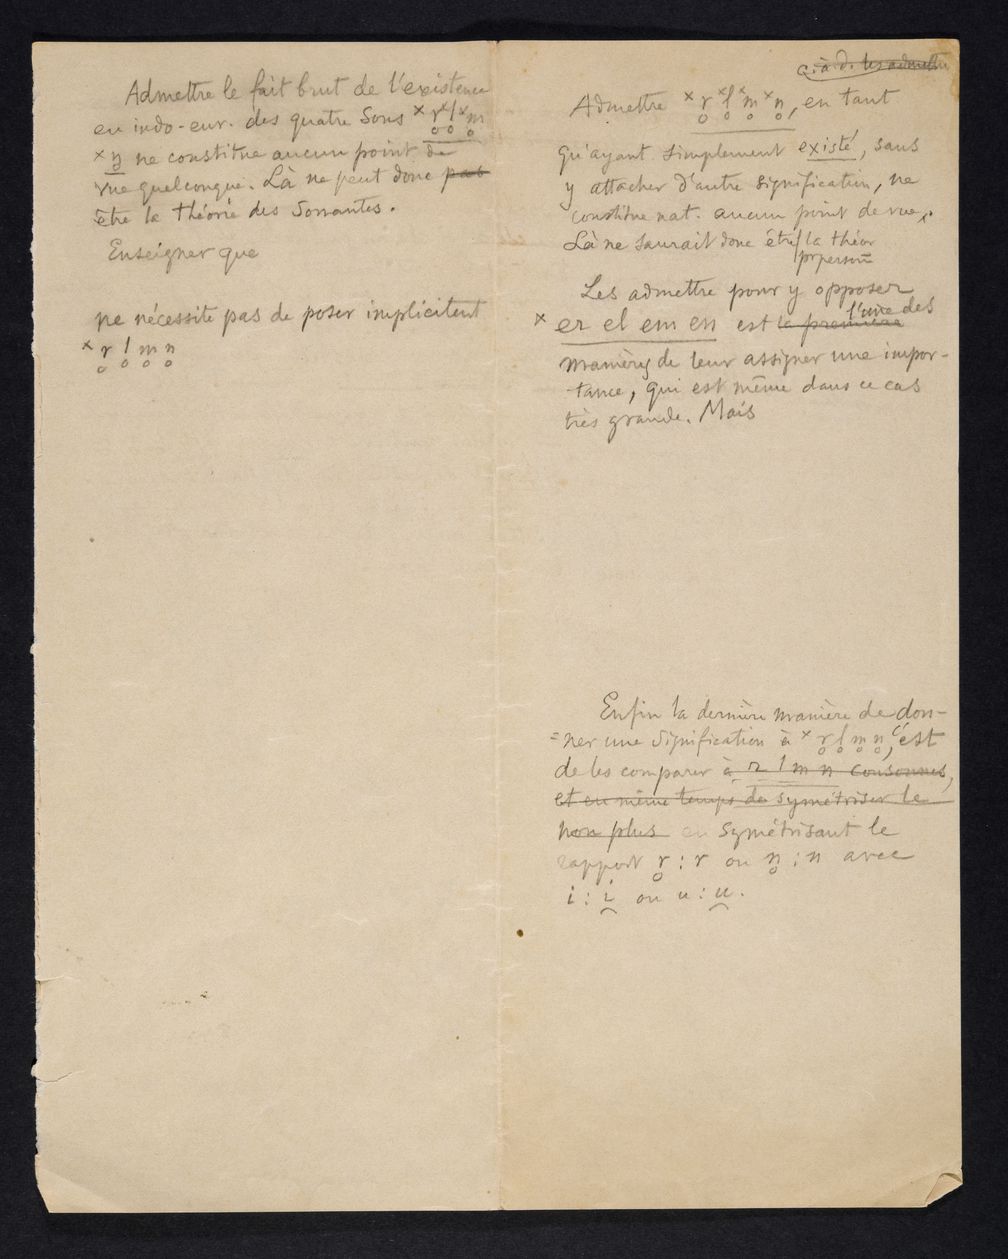 Admettre le fait brut de l'existence
en indo-eur. des quatre sons *r̥ *l̥ *m̥
*n̥ ne constitue aucun point de
vue quelconque. Là ne peut donc pas
être la théorie des Sonantes.
Enseigner que
ne nécessite pas de poser implicitent
*r̥ l̥ m̥ n̥
c.à.d. les admettre
Admettre *r̥ *l̥ *m̥ *n̥, en tant
qu'ayant simplement existé, sans
y attacher d'autre signification, ne
constitue nat. aucun point de vue.
Là ne saurait donc être la théor
Les admettre pour y opposer
*er el em en est la première l'une des
manières de leur assigner une impor-
tance, qui est même dans ce cas
très grande. Mais
Enfin la dernière manière de don-
=ner une signification à *r̥ l̥ m̥ n̥, c'est
de les comparer à r l m n consonnes,
et en même temps de symétriser le
non plus en symétrisant le
rapport r̥ : r ou n̥ : n avec
i : i̯ ou u : u̯.